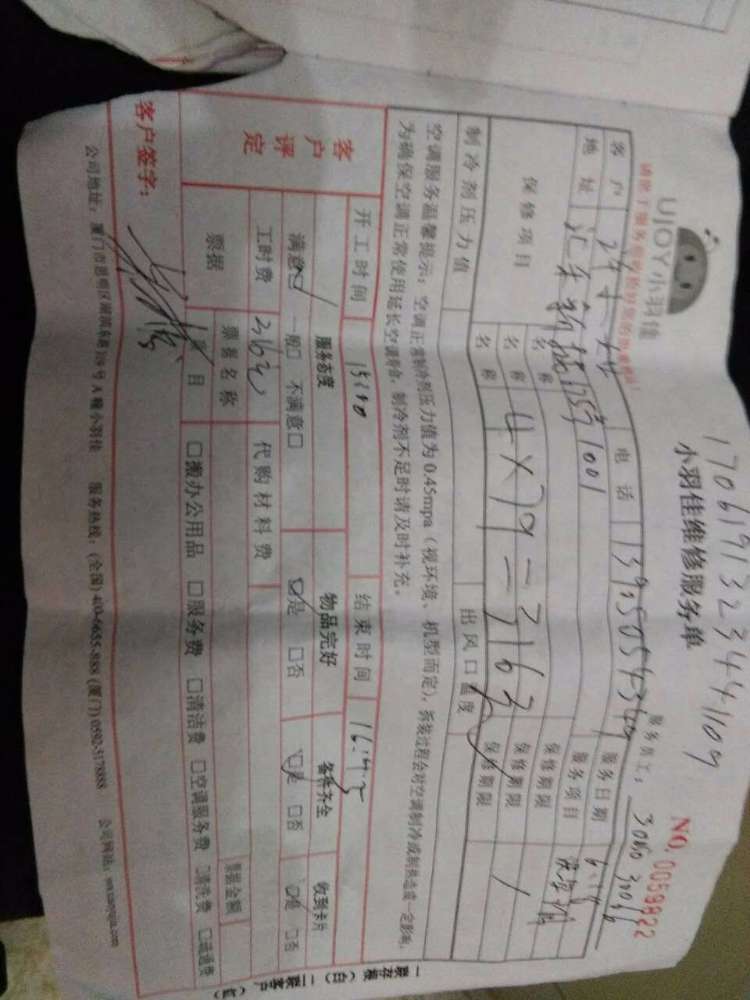 1706191323441109
UJOY小羽佳
小羽佳维修服务单
NO. 0059822
服务员工：
客户
电话
服务日期
地址
服务项目
保修项目
名称
保修期限
名称 4×79=316元
保修期限
名称
保修期限
制冷剂压力值
出风口温度
空调服务温馨提示：空调正常制冷剂压力值为 0.45mpa（视环境、机型而定），拆装过程会对空调制冷或制热造成一定影响，
为确保空调正常使用延长空调寿命，制冷剂不足时请及时补充。
客户评定
开工时间 15:40
结束时间
服务态度
物品完好
备件齐全
收到卡片
满意☑ 一般□ 不满意□
☑是 □否
☑是 □否
☑是 □否
工时费 316元
代购材料费
票据
票据名称
票据金额
□搬办公用品 □服务费 □清洁费 □空调服务费 □清洗费 □疏通费
客户签字：
月 日
公司地址：厦门市思明区 A幢小羽佳 服务热线：（全国）400-6655-888（厦门）0592-5178888 公司网址：
一联存根（白） 二联客户（红）